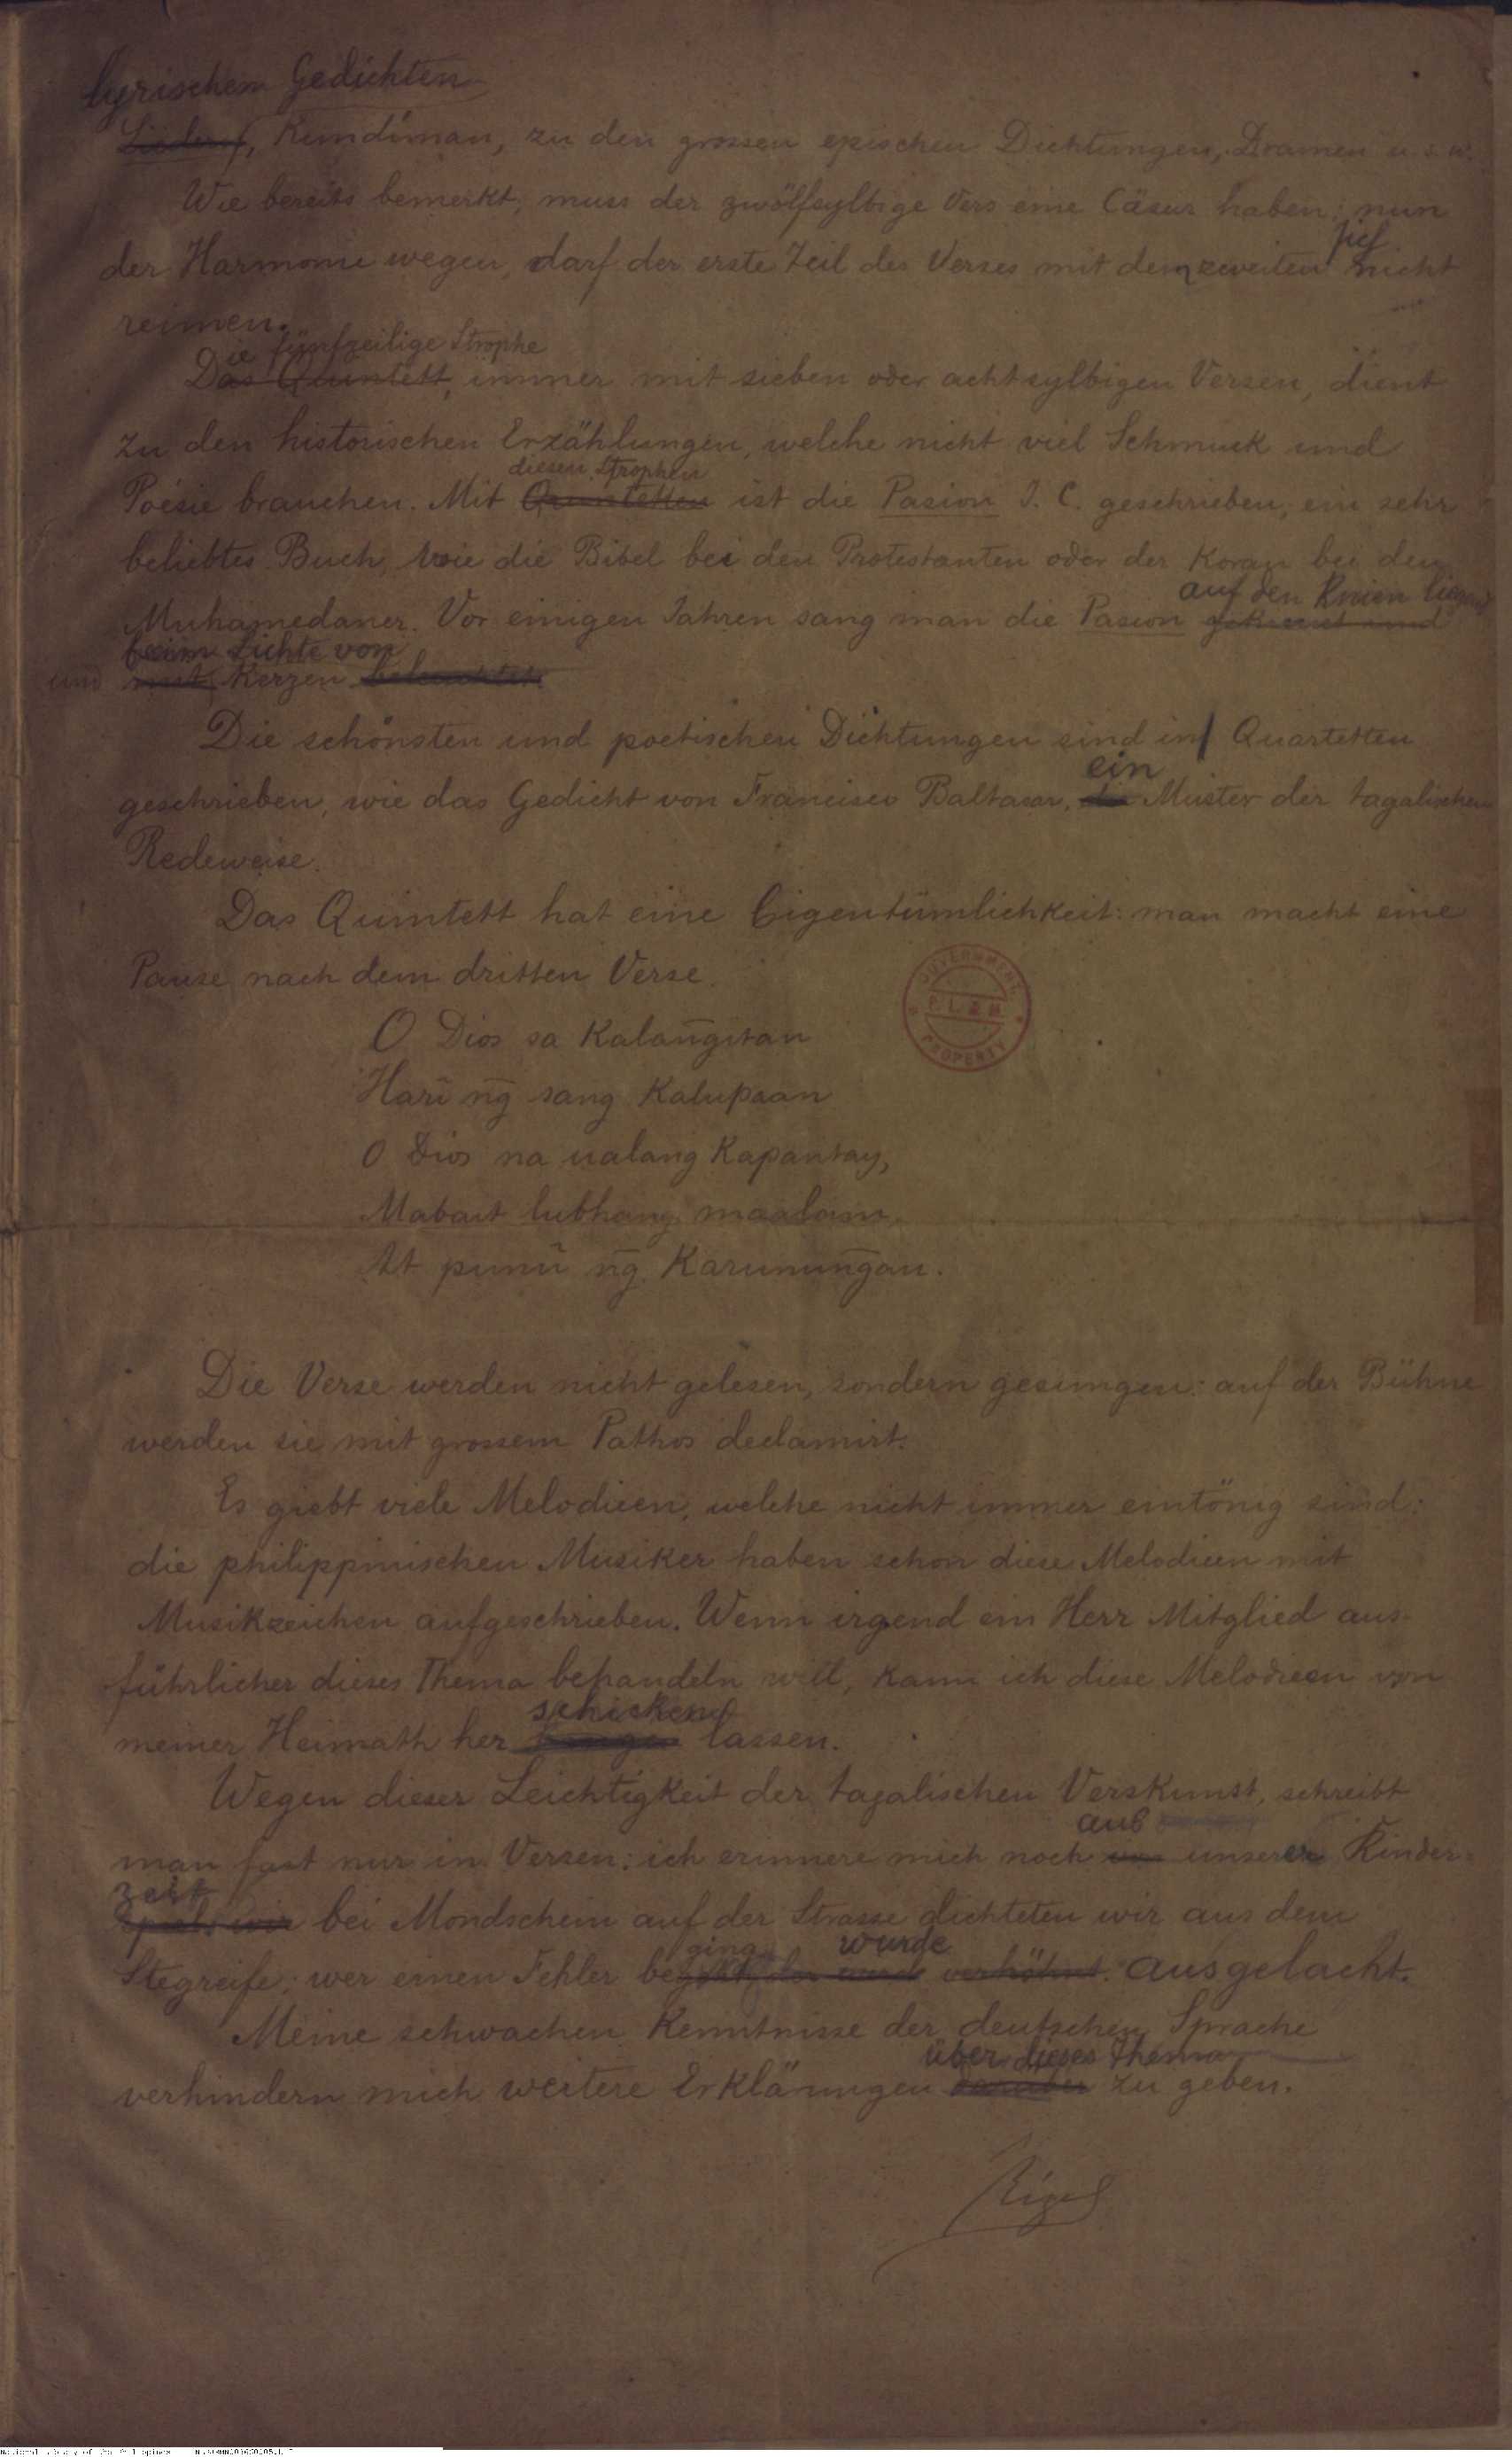 lyrischen Gedichten
Liedern, Kundiman, zu den grossen epischen Dichtungen, Dramen u. s. w.
Wie bereits bemerkt, muss der zwölfsylbige Vers eine Cäsur haben; nun
der Harmonie wegen, darf der erste Teil des Verses mit dem zweiten nicht
reimen.
Die fünfzeilige Strophe
Das Quintett, immer mit sieben oder achtsylbigen Versen, dient
zu den historischen Erzählungen, welche nicht viel Schmuck und
diesen Strophen
Poësie brauchen. Mit Quintetten ist die Pasion J. C. geschrieben, ein sehr
beliebtes Buch, wie die Bibel bei den Protestanten oder der Koran bei den
auf den Knien liegend
Muhamedaner. Vor einigen Jahren sang man die Pasion gekniet und
beim Lichte von
und mit Kerzen beleuchtet
Die schönsten und poetischen Dichtungen sind in Quartetten
ein
geschrieben, wie das Gedicht von Francisco Baltasar, die Muster der tagalischen
Redeweise.
Das Quintett hat eine Eigentümlichkeit: man macht eine
Pause nach dem dritten Verse.
GOVERNMENT PROPERTY
O Dios sa Kalan̄gitan
Hari n̄g sang Kalupaan
O Dios na ualang Kapantay,
Mabait lubhang maalam
At punu n̄g Karunun̄gan.
Die Verse werden nicht gelesen, sondern gesungen: auf der Bühne
werden sie mit grossem Pathos declamirt.
Es giebt viele Melodieen, welche nicht immer eintönig sind:
die philippinischen Musiker haben schon diese Melodieen mit
Musikzeichen aufgeschrieben. Wenn irgend ein Herr Mitglied aus-
führlicher dieses Thema behandeln will, kann ich diese Melodieen von
schicken
meiner Heimath her lassen.
Wegen dieser Leichtigkeit der tagalischen Verskunst, schreibt
aus
man fast nur in Versen: ich erinnere mich noch unserer Kinder-
zeit
wir bei Mondschein auf der Strasse dichteten wir aus dem
ging wurde
Stegreife: wer einen Fehler begeht, der wurde verhöhnt. ausgelacht.
Meine schwachen Kenntnisse der deutschen Sprache
über dieses Thema
verhindern mich weitere Erklärungen darüber zu geben.
Rizal